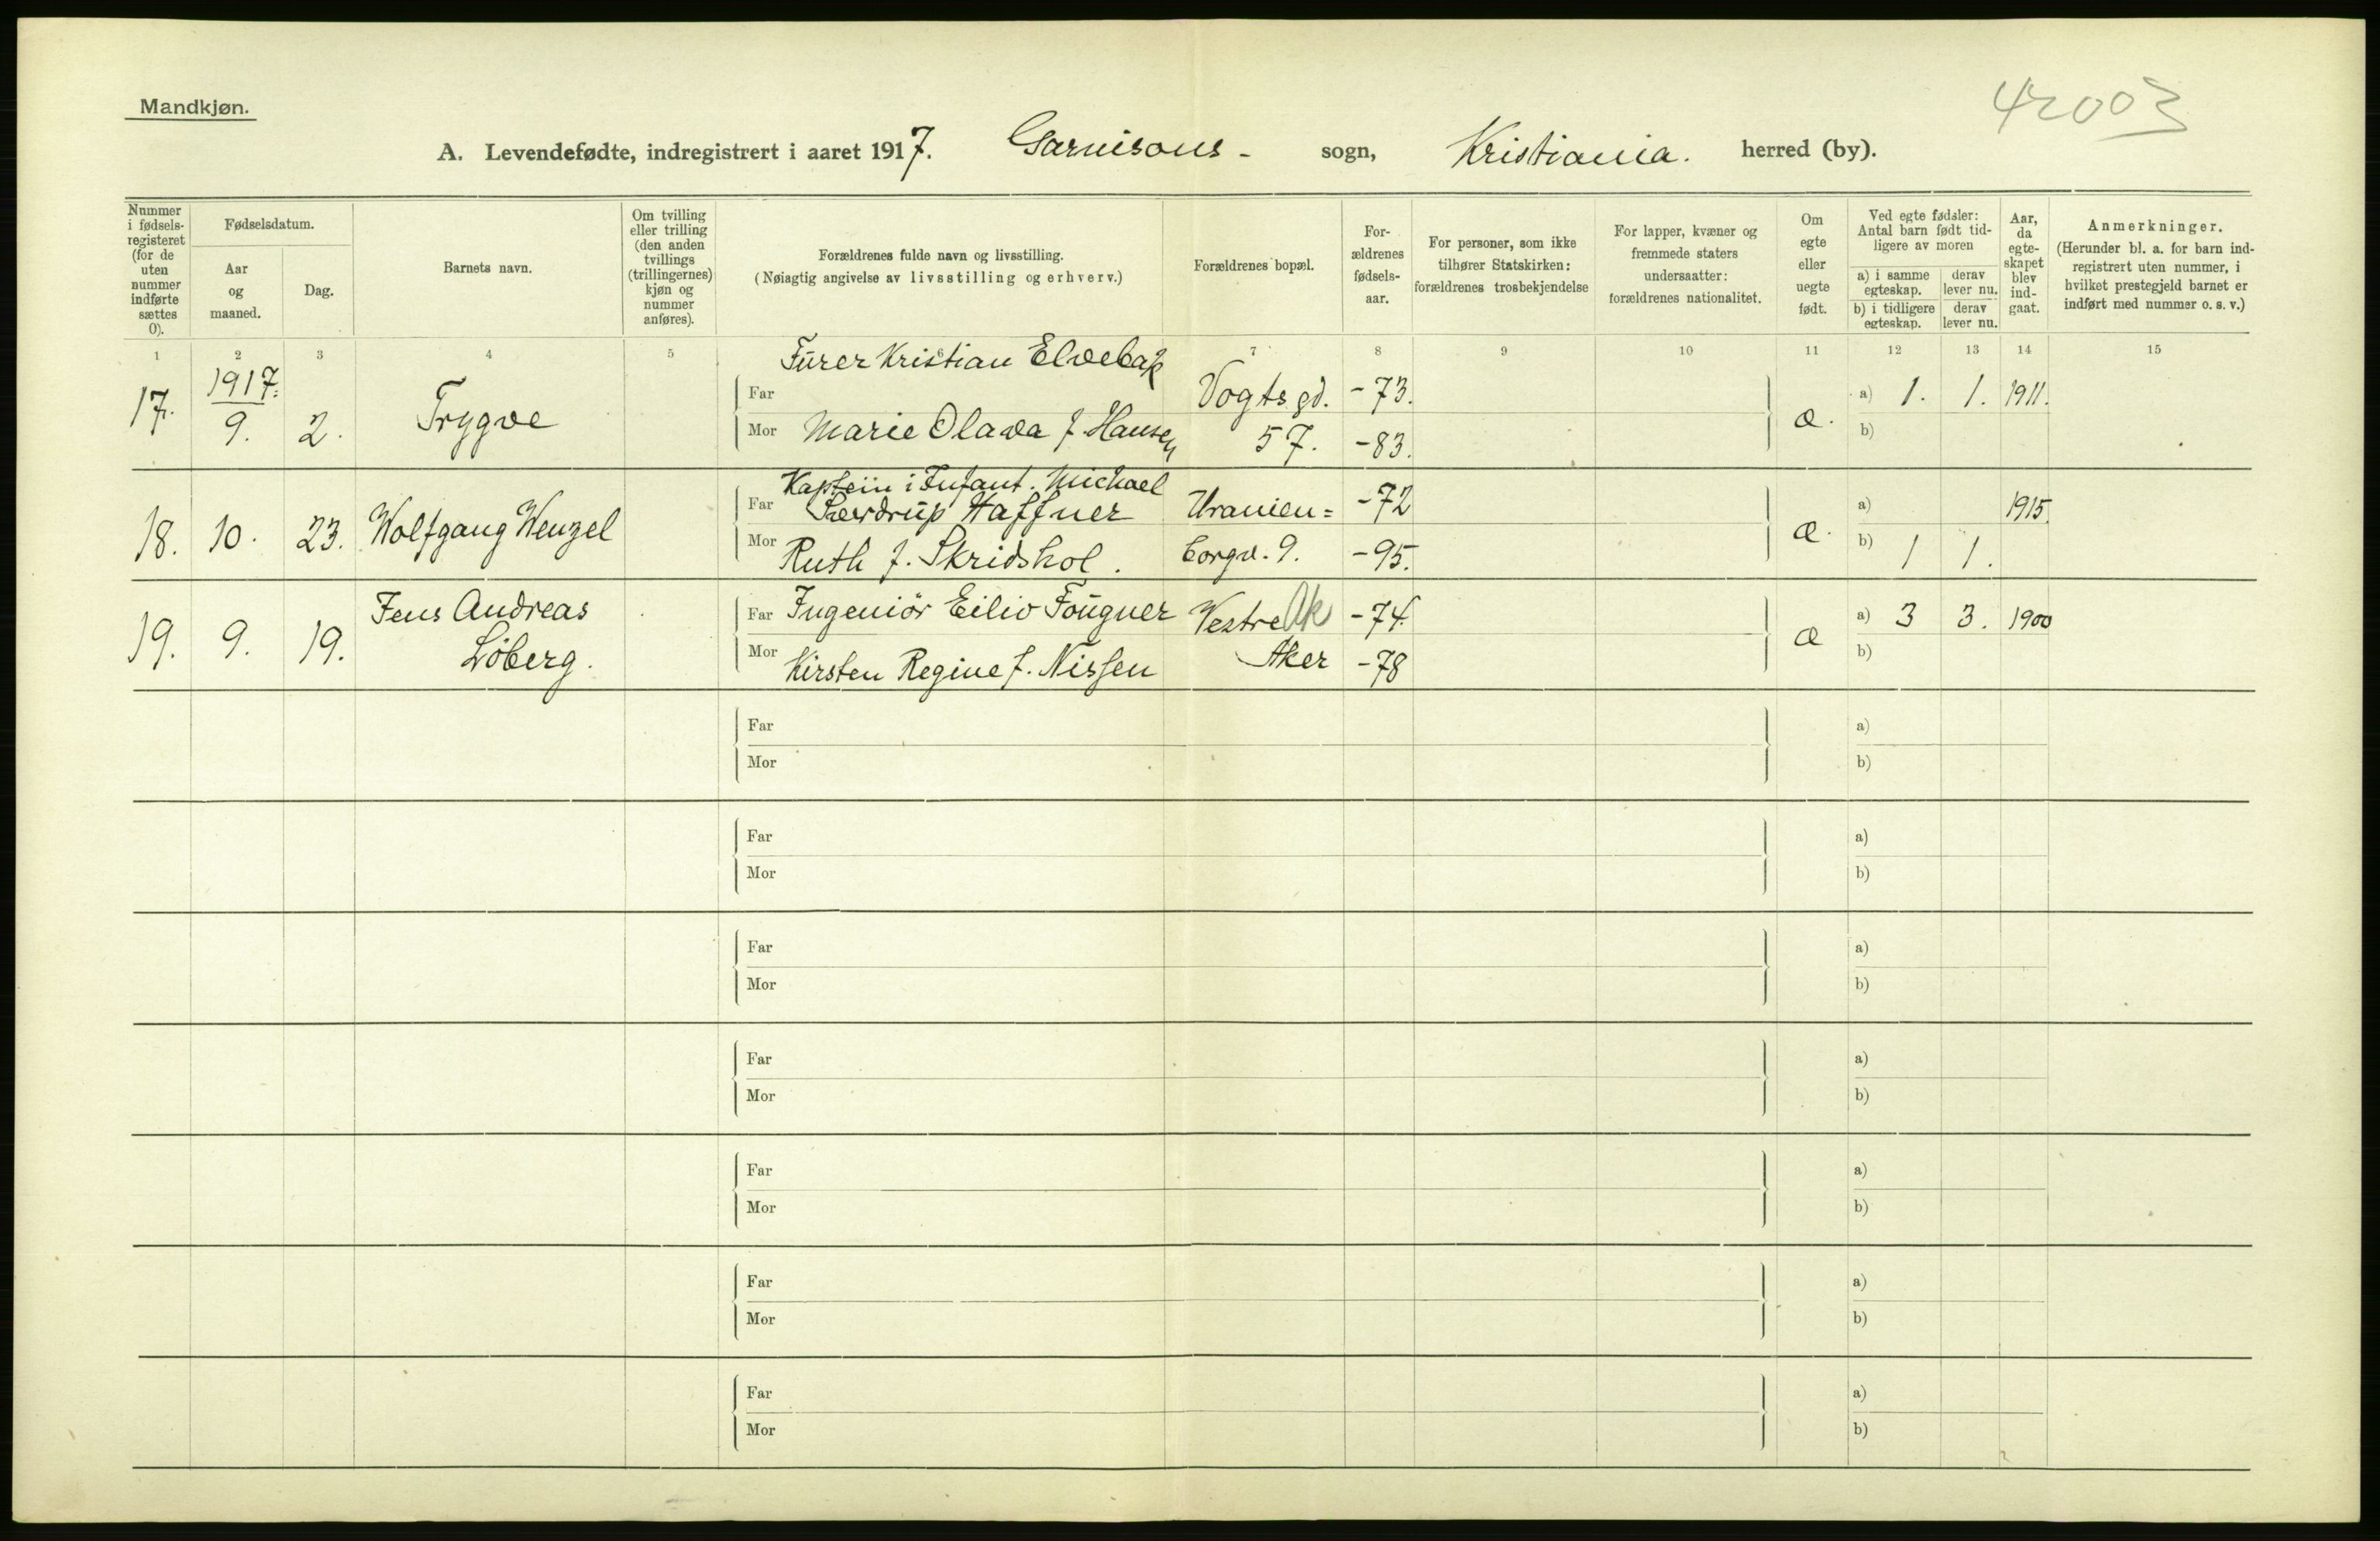 Mandkjøn.
42003
A. Levendefødte, indregistrert i aaret 1917. Garnisons- sogn, Kristiania. herred (by).
Nummer i fødsels-registeret (for de uten nummer indførte sættes 0).
Fødselsdatum.
Aar og maaned.
Dag.
Barnets navn.
Om tvilling eller trilling (den anden tvillings (trillingernes) kjøn og nummer anføres).
Forældrenes fulde navn og livsstilling.
(Nøiagtig angivelse av livsstilling og erhverv.)
Forældrenes bopæl.
For-ældrenes fødsels-aar.
For personer, som ikke tilhører Statskirken: forældrenes trosbekjendelse
For lapper, kvæner og fremmede staters undersaatter: forældrenes nationalitet.
Om egte eller uegte født.
Ved egte fødsler: Antal barn født tid-ligere av moren
a) i samme egteskap.
derav lever nu.
b) i tidligere egteskap.
derav lever nu.
Aar, da egte-skapet blev ind-gaat.
Anmerkninger.
(Herunder bl. a. for barn ind-registrert uten nummer, i hvilket prestegjeld barnet er indført med nummer o. s. v.)
1 2 3 4 5 6 7 8 9 10 11 12 13 14 15
Furer Kristian Elvebak
17. 1917. 9. 2. Trygve Far Vogts gd. -73. æ. a) 1. 1. 1911.
Mor Marie Olava f. Hansen 57. -83. b)
Kaptein i Infant. Michael
18. 10. 23. Wolfgang Wenzel Far Sverdrup Haffner Uranien= -72 æ. a) 1915.
Mor Ruth f. Skridshol. borgv. 9. -95. b) 1 1.
19. 9. 19. Jens Andreas Far Ingeniör Eiliv Fougner Vestre Ak -74. æ a) 3 3. 1900
Löberg. Mor Kirsten Regine f. Nissen Aker -78 b)
Far a)
Mor b)
Far a)
Mor b)
Far a)
Mor b)
Far a)
Mor b)
Far a)
Mor b)
Far a)
Mor b)
Far a)
Mor b)